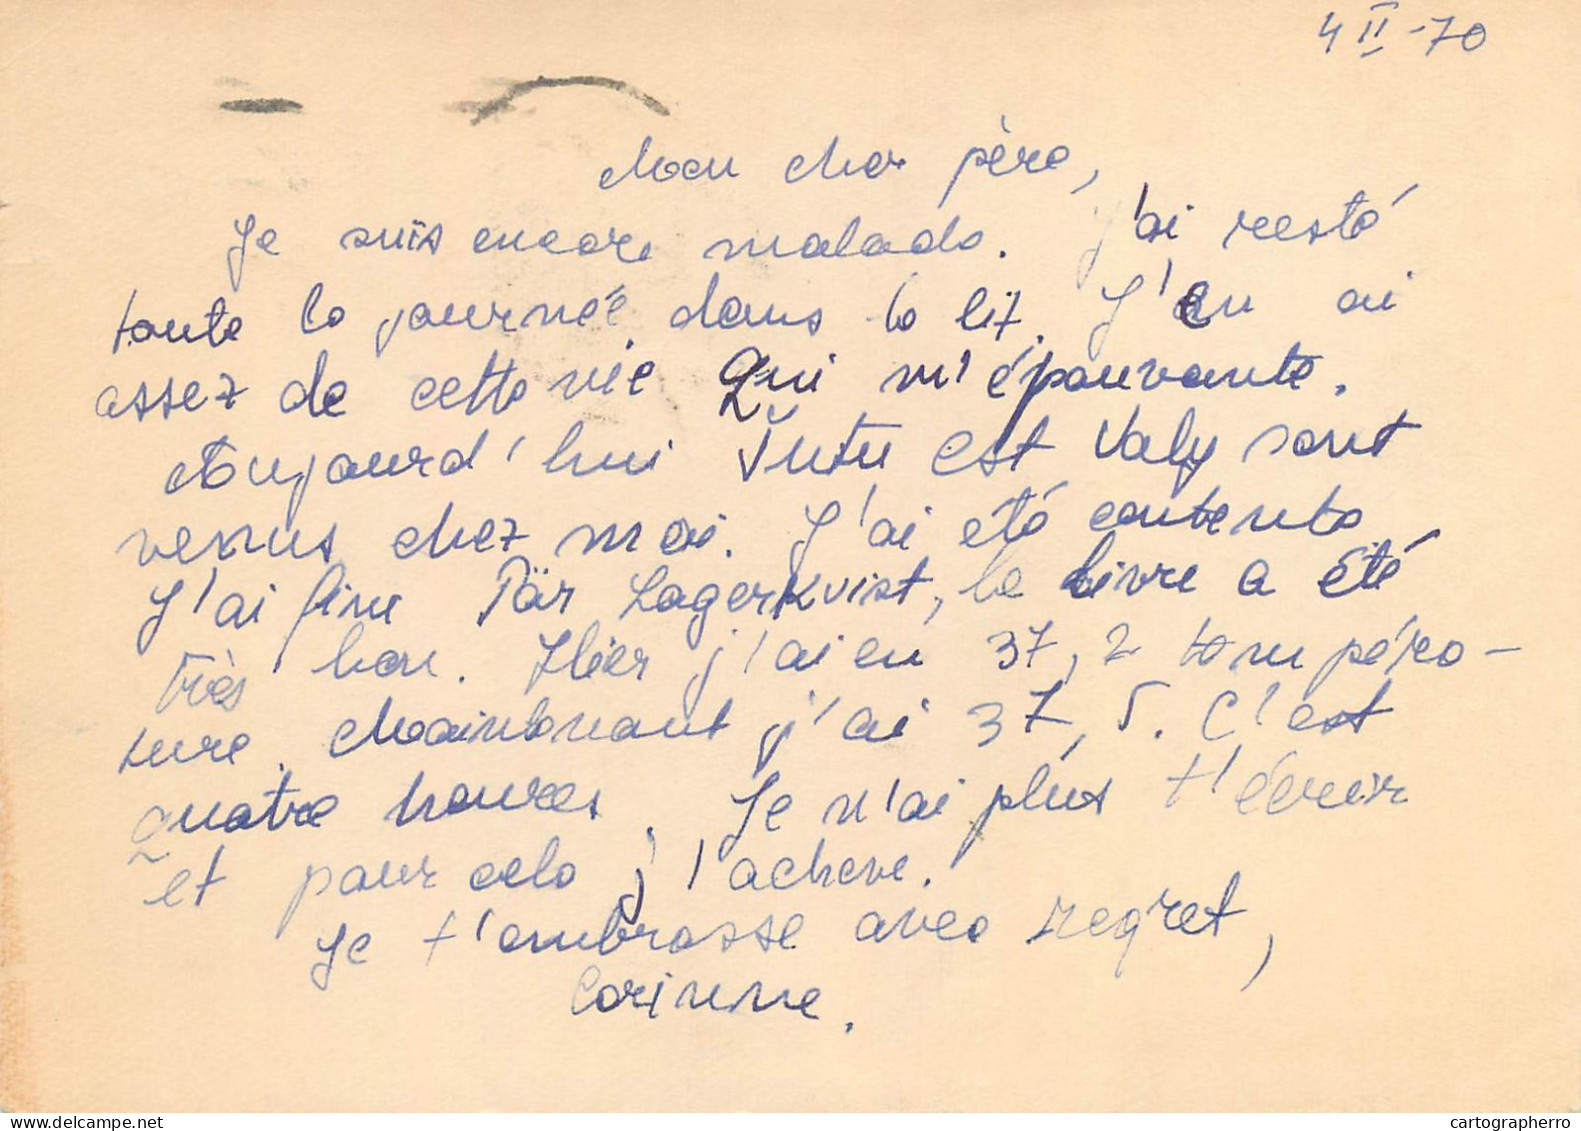 4 II -70
Mon cher père,
Je suis encore malade. J'ai resté
toute la journée dans le lit. J'en ai
assez de cette vie qui m'épouvante.
Aujourd'hui Tutu est Valy sont
venus chez moi. J'ai été contente
J'ai fini Pär Lagerkvist, le livre a été
très bon. Hier j'ai eu 37,2 tempéra-
ture. Maintenant j'ai 37,5. C'est
quatre heures. Je n'ai plus t'écrir
et pour cela j'l'acheve.
Je t'embrasse avec regret,
Corinne.
delcampe.net
cartographerro